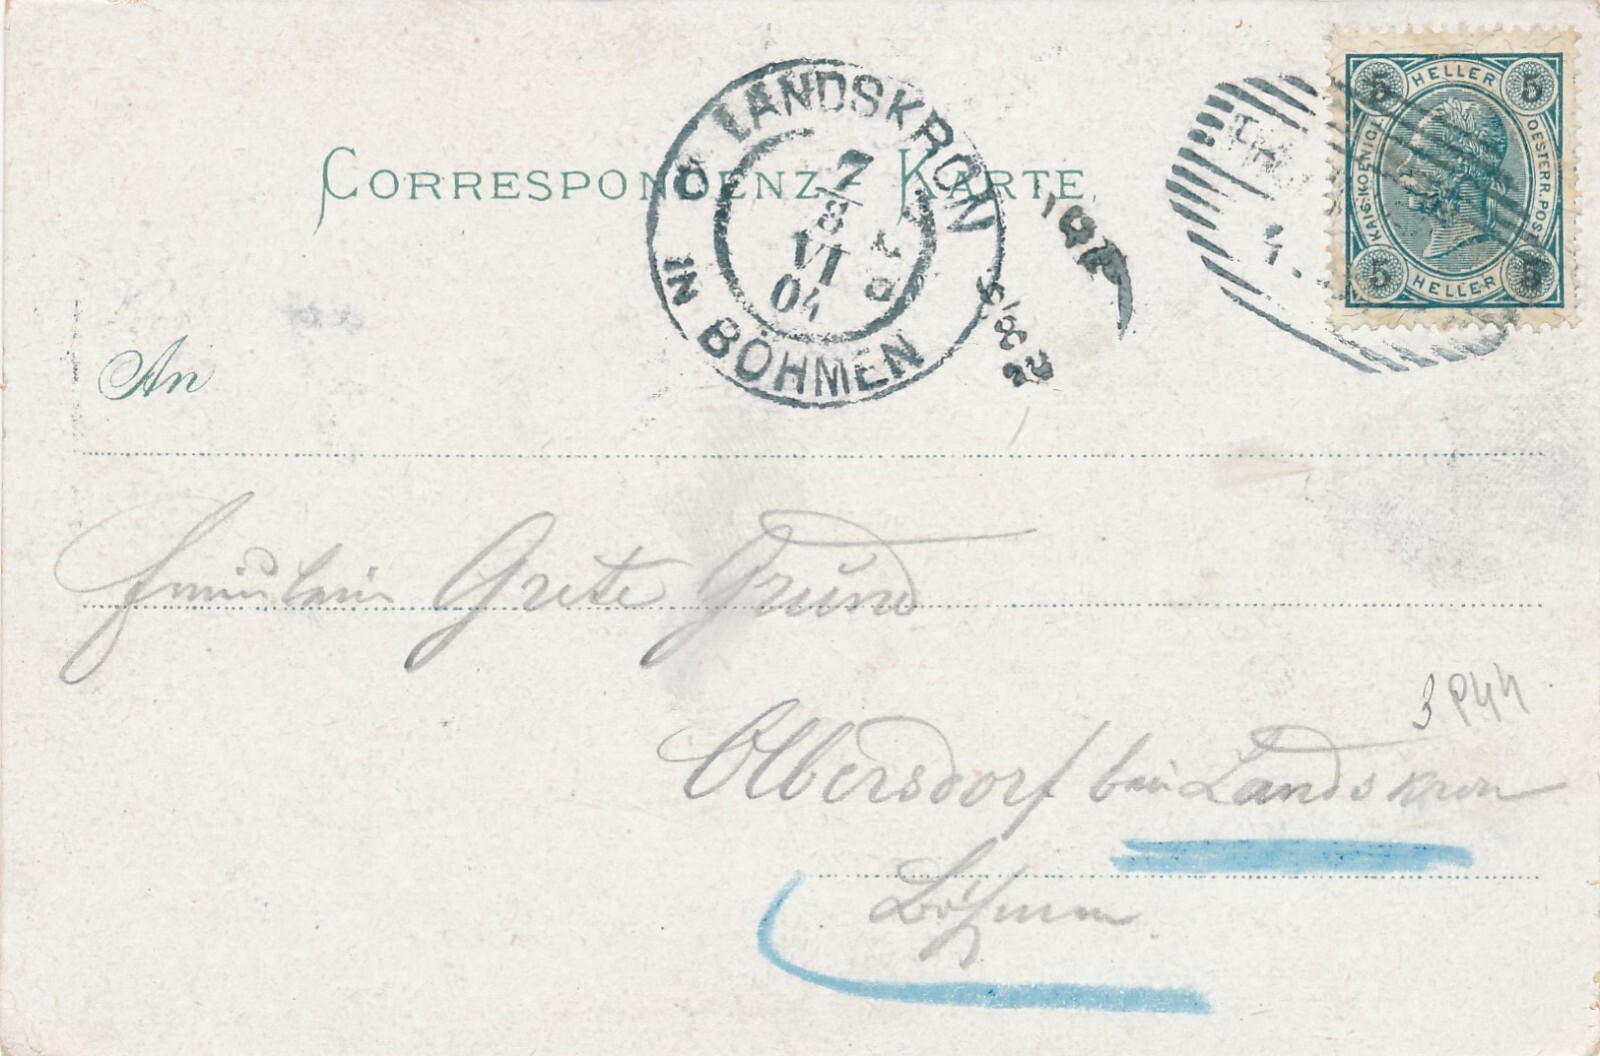 CORRESPONDENZ-KARTE.
LANDSKRON
IN BÖHMEN
7/8
VI
04
5 HELLER 5
KAIS. KOENIGL.
OESTERR. POST
5 HELLER 5
An
Fräulein Grete Grund
Olbersdorf bei Landskron
Böhmen
3 P44